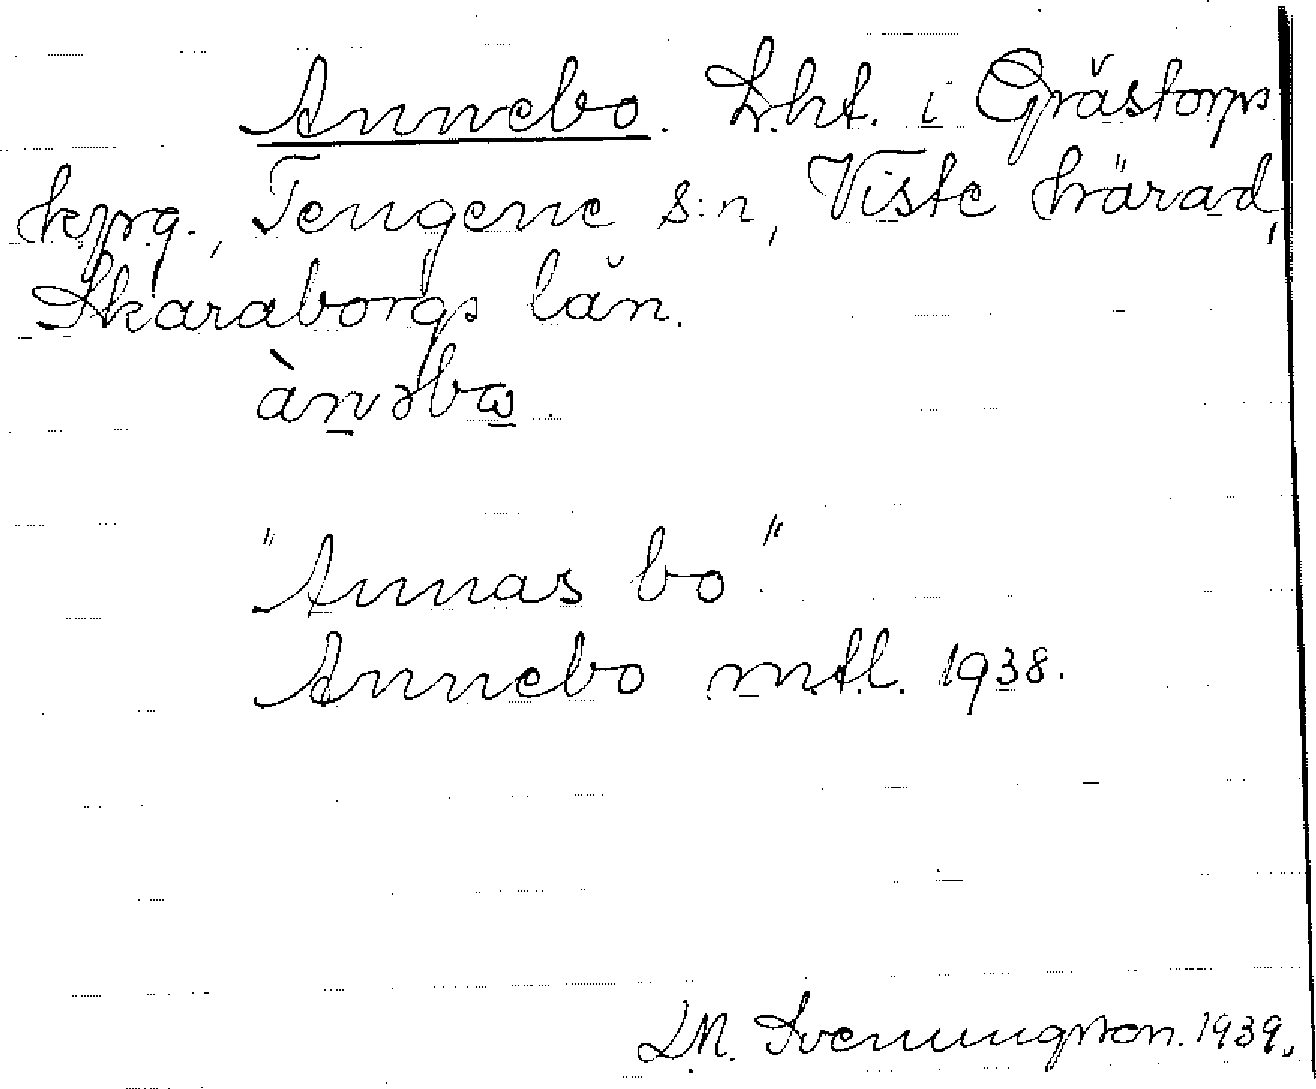 Annebo. Lht. i Grästorps
kpg., Tengene s:n, Viste härad,
Skaraborgs län.
ànəbω.
"Annas bo."
Annebo mtl. 1938.
Svenungsson. 1939.